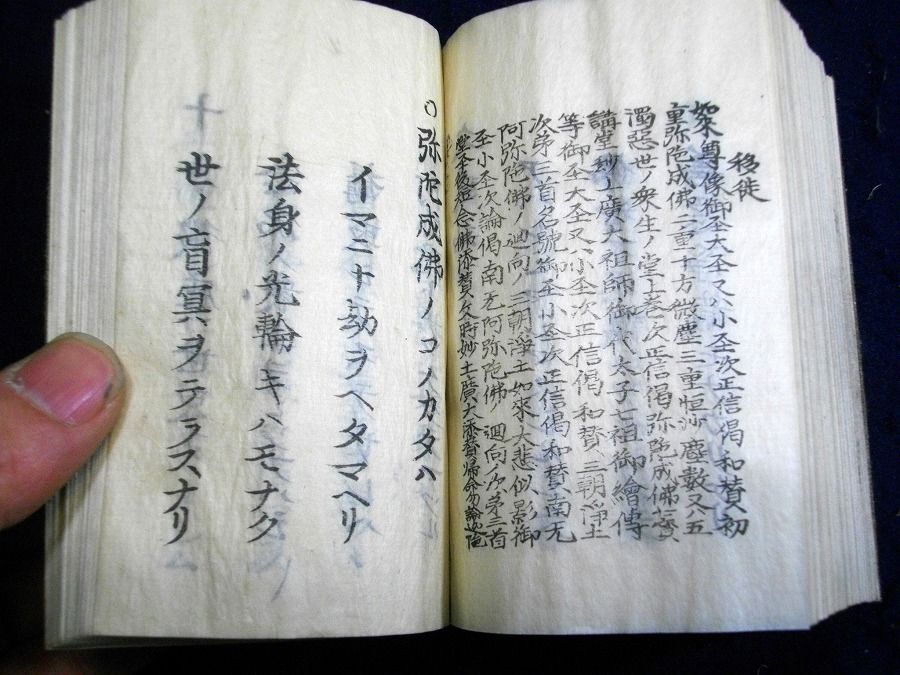 移徙
尊像御圣大圣又ハ小圣次正信偈和賛初
重弥陀成佛二重十方微塵三重恒沙塵数又ハ五
濁悪世ノ衆生ノ堂上巻次正信偈弥陀成佛
講堂廣大祖師御代太子七祖御繪傳
等御圣大圣又ハ小圣次正信偈和賛三朝浄土
次第三首名號御圣小圣次正信偈和賛南无
阿弥陀佛ノ廻向ノ三朝浄土如來大悲似影御
圣小圣次論偈南无阿弥陀佛廻向ノ次第三首
念佛添賛文時妙土廣大
○弥陀成佛ノコノカタハ
イマニ十劫ヲヘタマヘリ
法身ノ光輪キハモナク
世ノ盲冥ヲテラスナリ